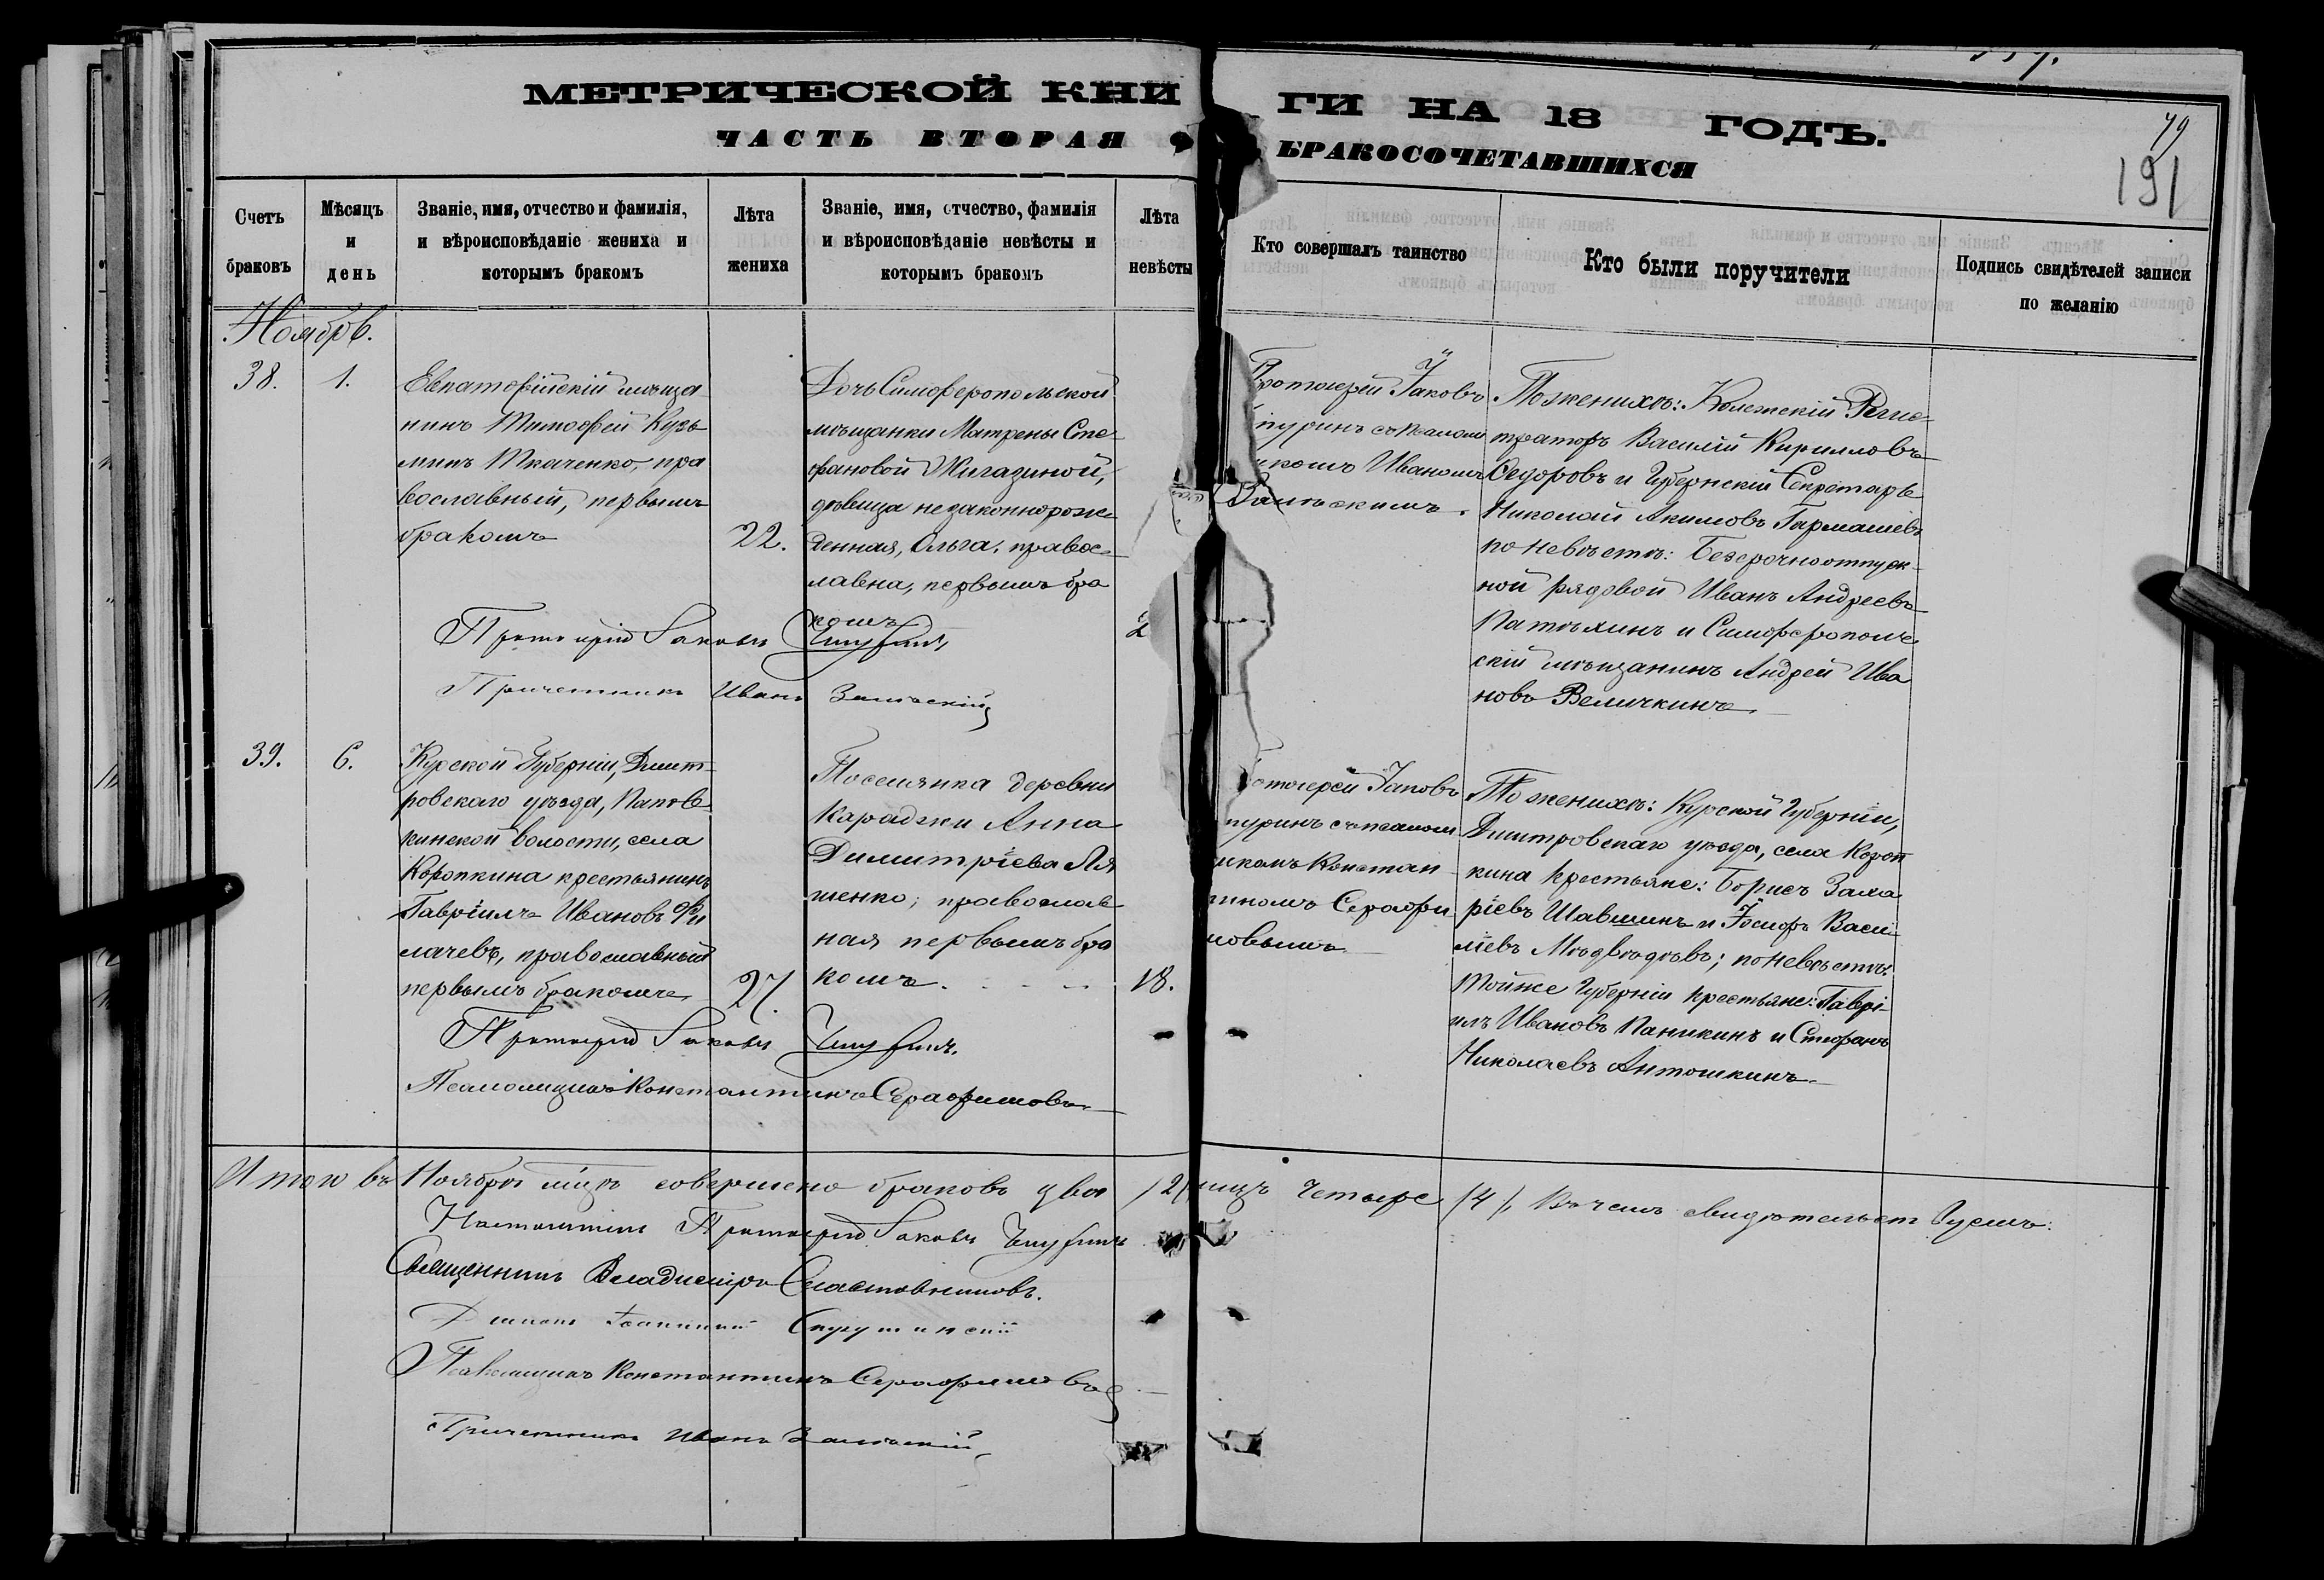 МЕТРИЧЕСКОЙ КНИ ГИ НА 18 ГОДЪ.
ЧАСТЬ ВТОРАЯ О БРАКОСОЧЕТАВШИХСЯ
79
191
Счетъ браковъ
Мѣсяцъ и день
Званіе, имя, отчество и фамилія,
и вѣроисповѣданіе жениха и
которымъ бракомъ
Лѣта
жениха
Званіе, имя, отчество, фамилія
и вѣроисповѣданіе невѣсты и
которымъ бракомъ
Лѣта
невѣсты
Кто совершалъ таинство
Кто были поручители
Подпись свидѣтелей записи
по желанію
Ноябрь.
38.
1.
Евпаторійскій мѣща
нинъ Тимофей Кузь
минъ Ткаченко, пра
вославный, первымъ
бракомъ
22.
Дочь Симферопольской
мѣщанки Матрены Сте
фановой Жигазиной,
дѣвица незаконнорож
денная, Ольга, правос
лавна, первымъ бра
комъ
2
Протоіерей Іаковъ
пуринъ съ псалом
икомъ Иваномъ
Замѣскимъ.
По женихѣ: Колежскій Регис
траторъ Василій Кирилловъ
Ѳедоровъ и Губернскій Секретарь
Николай Акимовъ Гармашевъ
по невѣстѣ: Безсрочноотпуск
ной рядовой Иванъ Андреевъ
Патѣхинъ и Симферополь
скій мѣщанинъ Андрей Ива
новъ Величкинъ.
Протоіерей Іаковъ Чпуринъ
Причетникъ Иванъ Замѣскій
39.
6.
Курской Губерніи, Дмит
ровскаго уѣзда,
кинской волости, села
Коропкина крестьянинъ
Гавріилъ Ивановъ Фи
лачевъ, православный
первымъ бракомъ
27.
Поселянка деревни
Караджи Анна
Димитріева Ля
шенко, православ
ная первымъ бра
комъ
18.
отоіерей Іаковъ
пуринъ съ псалом
икомъ Констан
тиномъ Серафи
мовымъ
По женихѣ: Курской Губерніи,
Дмитровскаго уѣзда, села Короп
кина крестьяне: Борисъ Заха
ріевъ Шавшинъ и Іосифъ Васи
ліевъ Мѣдвѣдѣвъ; по невѣстѣ:
тойже Губерніи крестьяне: Гаврі
илъ Ивановъ Паникинъ и Стефанъ
Николаевъ Антошкинъ.
Протоіерей Іаковъ Чпуринъ.
Псаломщикъ Константинъ Серафимовъ
Итого въ Ноябрѣ мцѣ совершено браковъ два /2/ лицъ четыре /4/, Въ чемъ свидѣтельствуемъ:
Настоятель Протоіерей Іаковъ Чпуринъ
Священникъ Владиміръ Сластовниковъ.
Діаконъ Іоанникій
Псаломщикъ Константинъ Серафимовъ
Причетникъ Иванъ Замѣскій